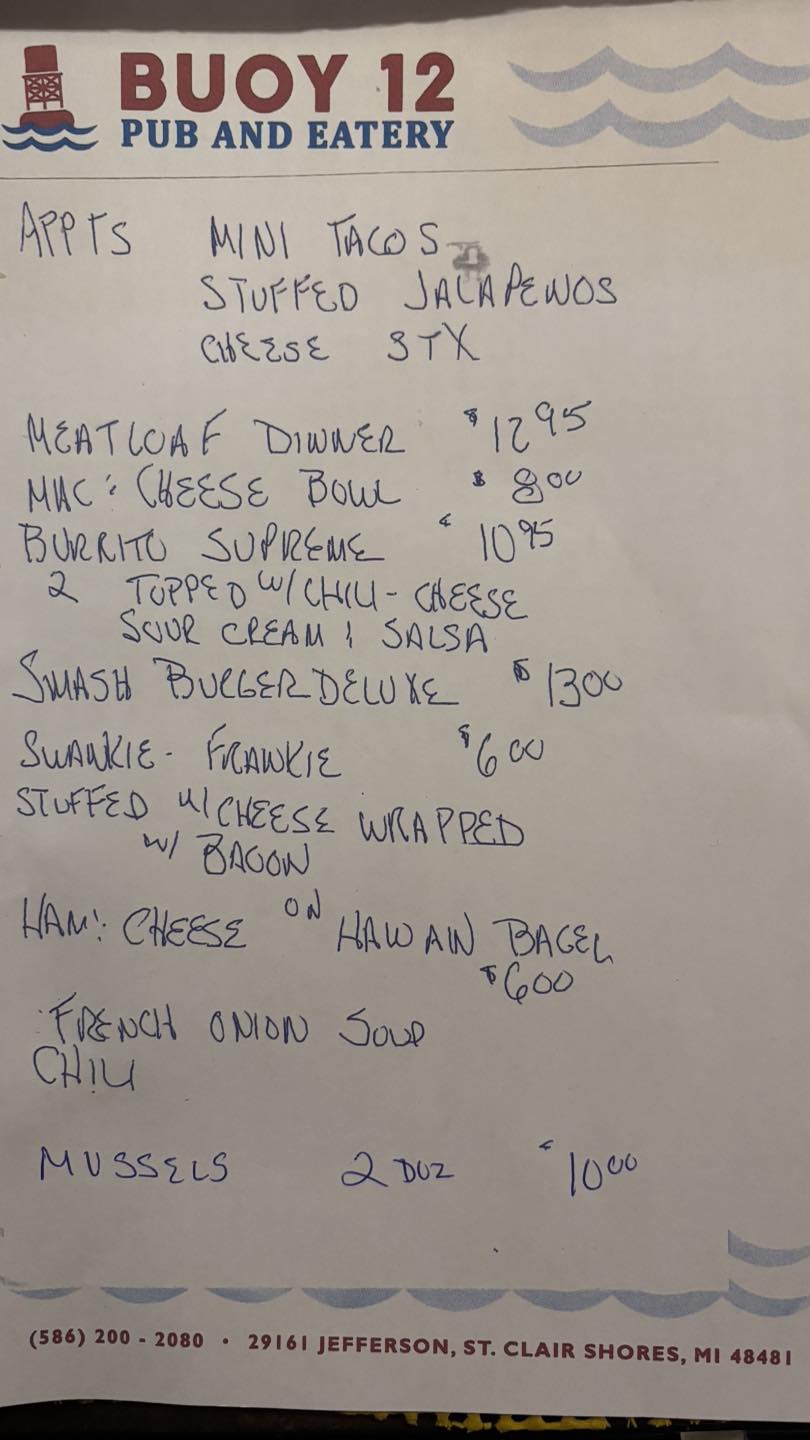 BUOY 12
PUB AND EATERY
APPTS MINI TACOS
STUFFED JALAPENOS
CHEESE STX
MEATLOAF DINNER $12.95
MAC & CHEESE BOWL $8.00
BURRITO SUPREME $10.95
2 TOPPED W/CHILI - CHEESE
SOUR CREAM & SALSA
SMASH BURGER DELUXE $13.00
SWANKIE - FRANKIE $6.00
STUFFED W/CHEESE WRAPPED
W/ BACON
HAM & CHEESE ON HAWAIN BAGEL
$6.00
FRENCH ONION SOUP
CHILI
MUSSELS 2 DOZ $10.00
(586) 200 - 2080 • 29161 JEFFERSON, ST. CLAIR SHORES, MI 48481